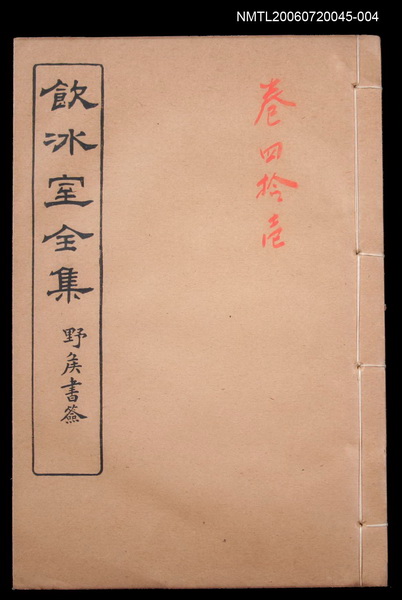 NMTL20060720045-004
卷四拾壱
飲冰室全集
野矦書簽